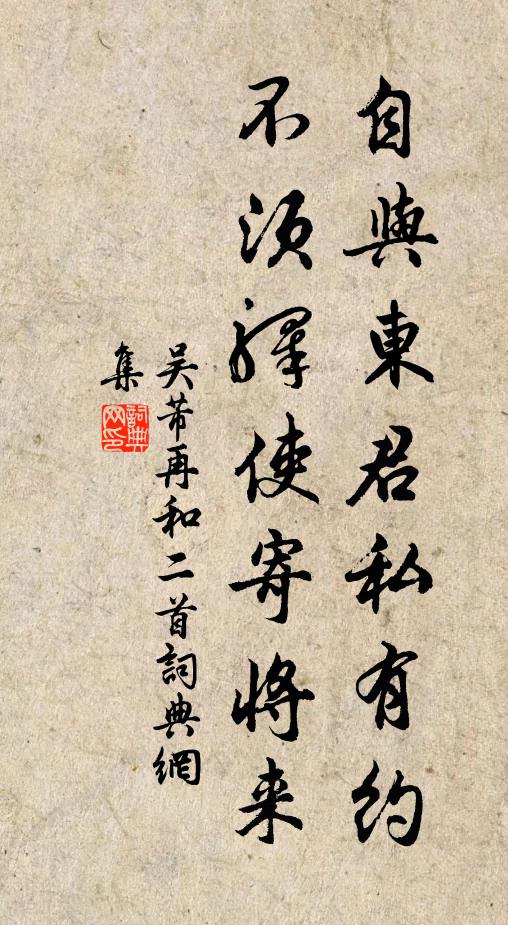 自與東君私有約
不須驛使寄將来
吴芾再和二首詞典網
集
詞典
网印